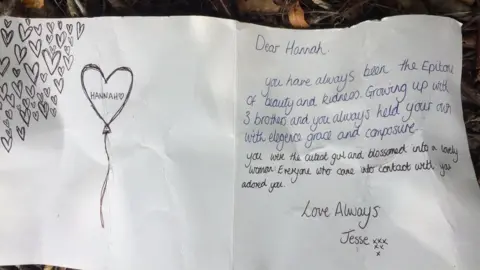 HANNAH♡
Dear Hannah.
you have always been the Epitome
of beauty and kidness. Growing up with
3 brothers and you always held your own
with elegence grace and composure
you were the cutest girl and blossomed into a lovely
woman. Everyone who came into contact with you
adored you.
Love Always
Jesse xxx
xx
x